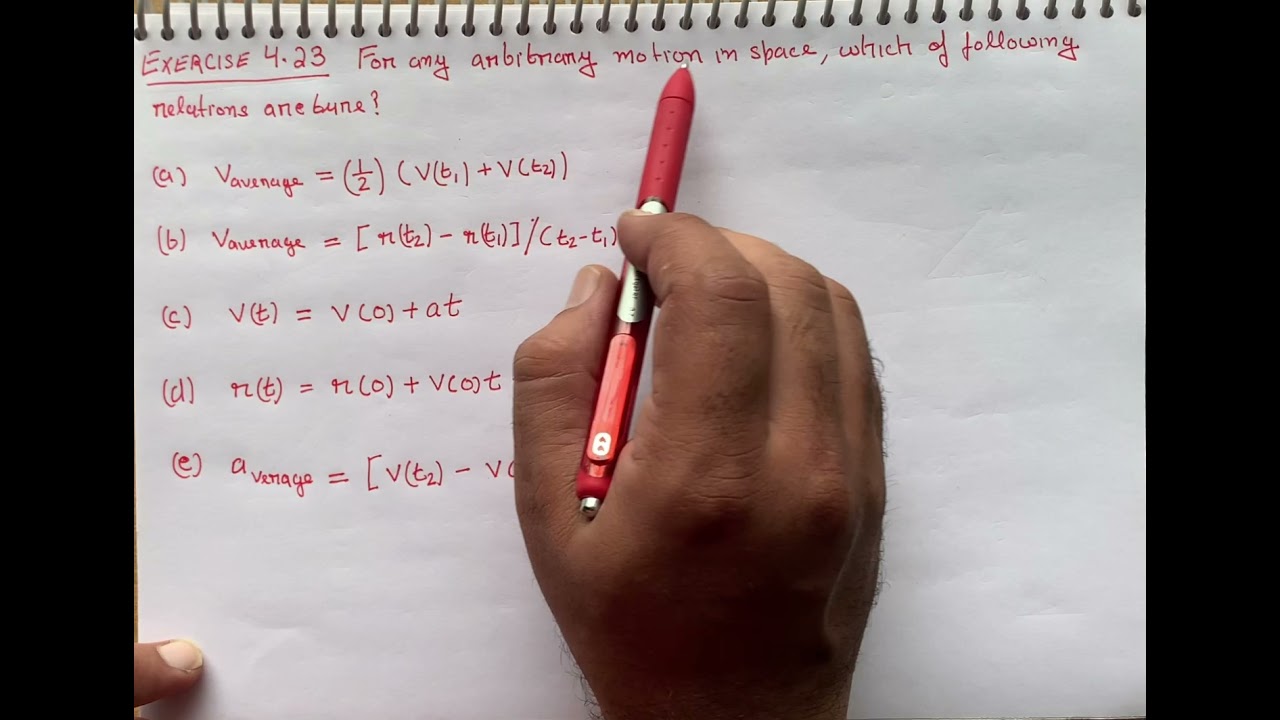 EXERCISE 4.23 For any arbitrary motion in space, which of following
relations are true?
(a) Vaverage = (1/2) (V(t1) + V(t2))
(b) Vaverage = [r(t2) - r(t1)]/(t2-t1)
(c) V(t) = V(0) + at
(d) r(t) = r(0) + V(0)t
(e) average = [V(t2) - V(